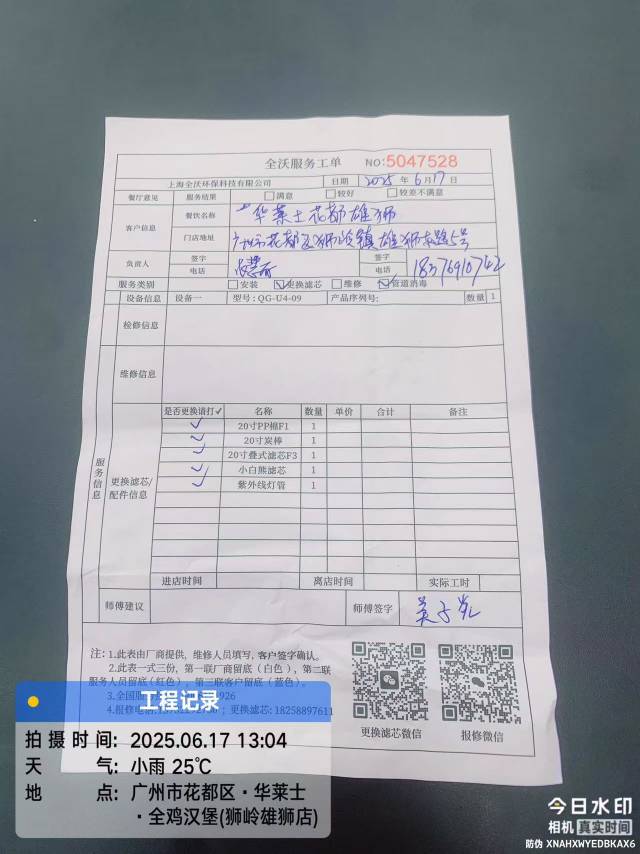 全沃服务工单 NO:5047528
上海全沃环保科技有限公司 日期 2025 年 6月17日
餐厅意见 服务结果 满意 较好 较差不满意
客户信息 餐饮名称 华莱士花都雄狮
门店地址 广州市花都区狮岭镇雄狮东路5号
负责人 签字 电话 签字 电话 18376910742
服务类别 安装 更换滤芯 维修 管道消毒
设备信息 设备一 型号: QG-U4-09 产品序列号: 数量 1
检修信息
维修信息
服务信息
更换滤芯/配件信息
是否更换请打✓ 名称 数量 单价 合计 备注
✓ 20寸PP棉F1 1
✓ 20寸炭棒 1
✓ 20寸叠式滤芯F3 1
✓ 小白熊滤芯 1
✓ 紫外线灯管 1
进店时间 离店时间 实际工时
师傅建议 师傅签字
注: 1.此表由厂商提供，维修人员填写，客户签字确认。
2.此表一式三份，第一联厂商留底(白色)，第二联
服务人员留底(红色)，第三联客户留底(蓝色)。
3.全国
926
4.报修电话: ；更换滤芯: 18258897611
更换滤芯微信 报修微信
工程记录
拍摄时间: 2025.06.17 13:04
天气: 小雨 25℃
地点: 广州市花都区·华莱士
·全鸡汉堡(狮岭雄狮店)
今日水印
相机 真实时间
防伪 XNAHXWYEDBKAX6